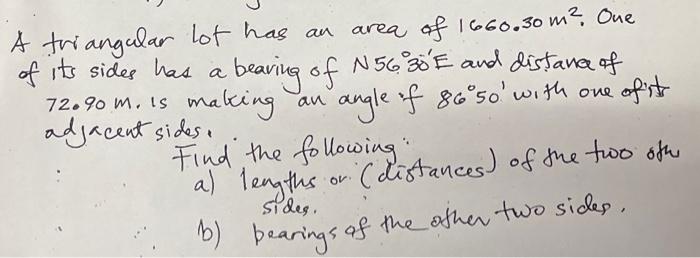 A triangular lot has an area of 1660.30 m². One
of its sides has a bearing of N 56°30'E and distance of
72.90 m. is making an angle of 86°50' with one of its
adjacent sides.
Find the following:
a) lengths or (distances) of the two oth
sides.
b) bearings of the other two sides.